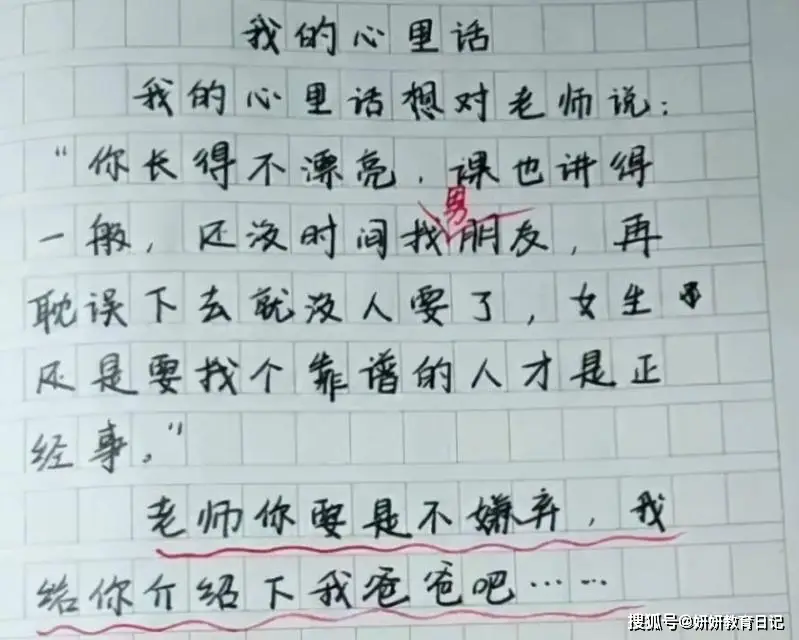 我的心里话
我的心里话想对老师说：
“你长得不漂亮，课也讲得
一般，还没时间找男朋友，再
耽误下去就没人要了，女生
还是要找个靠谱的人才是正
经事。”
老师你要是不嫌弃，我
给你介绍下我爸爸吧……
搜狐号@妍妍教育日记